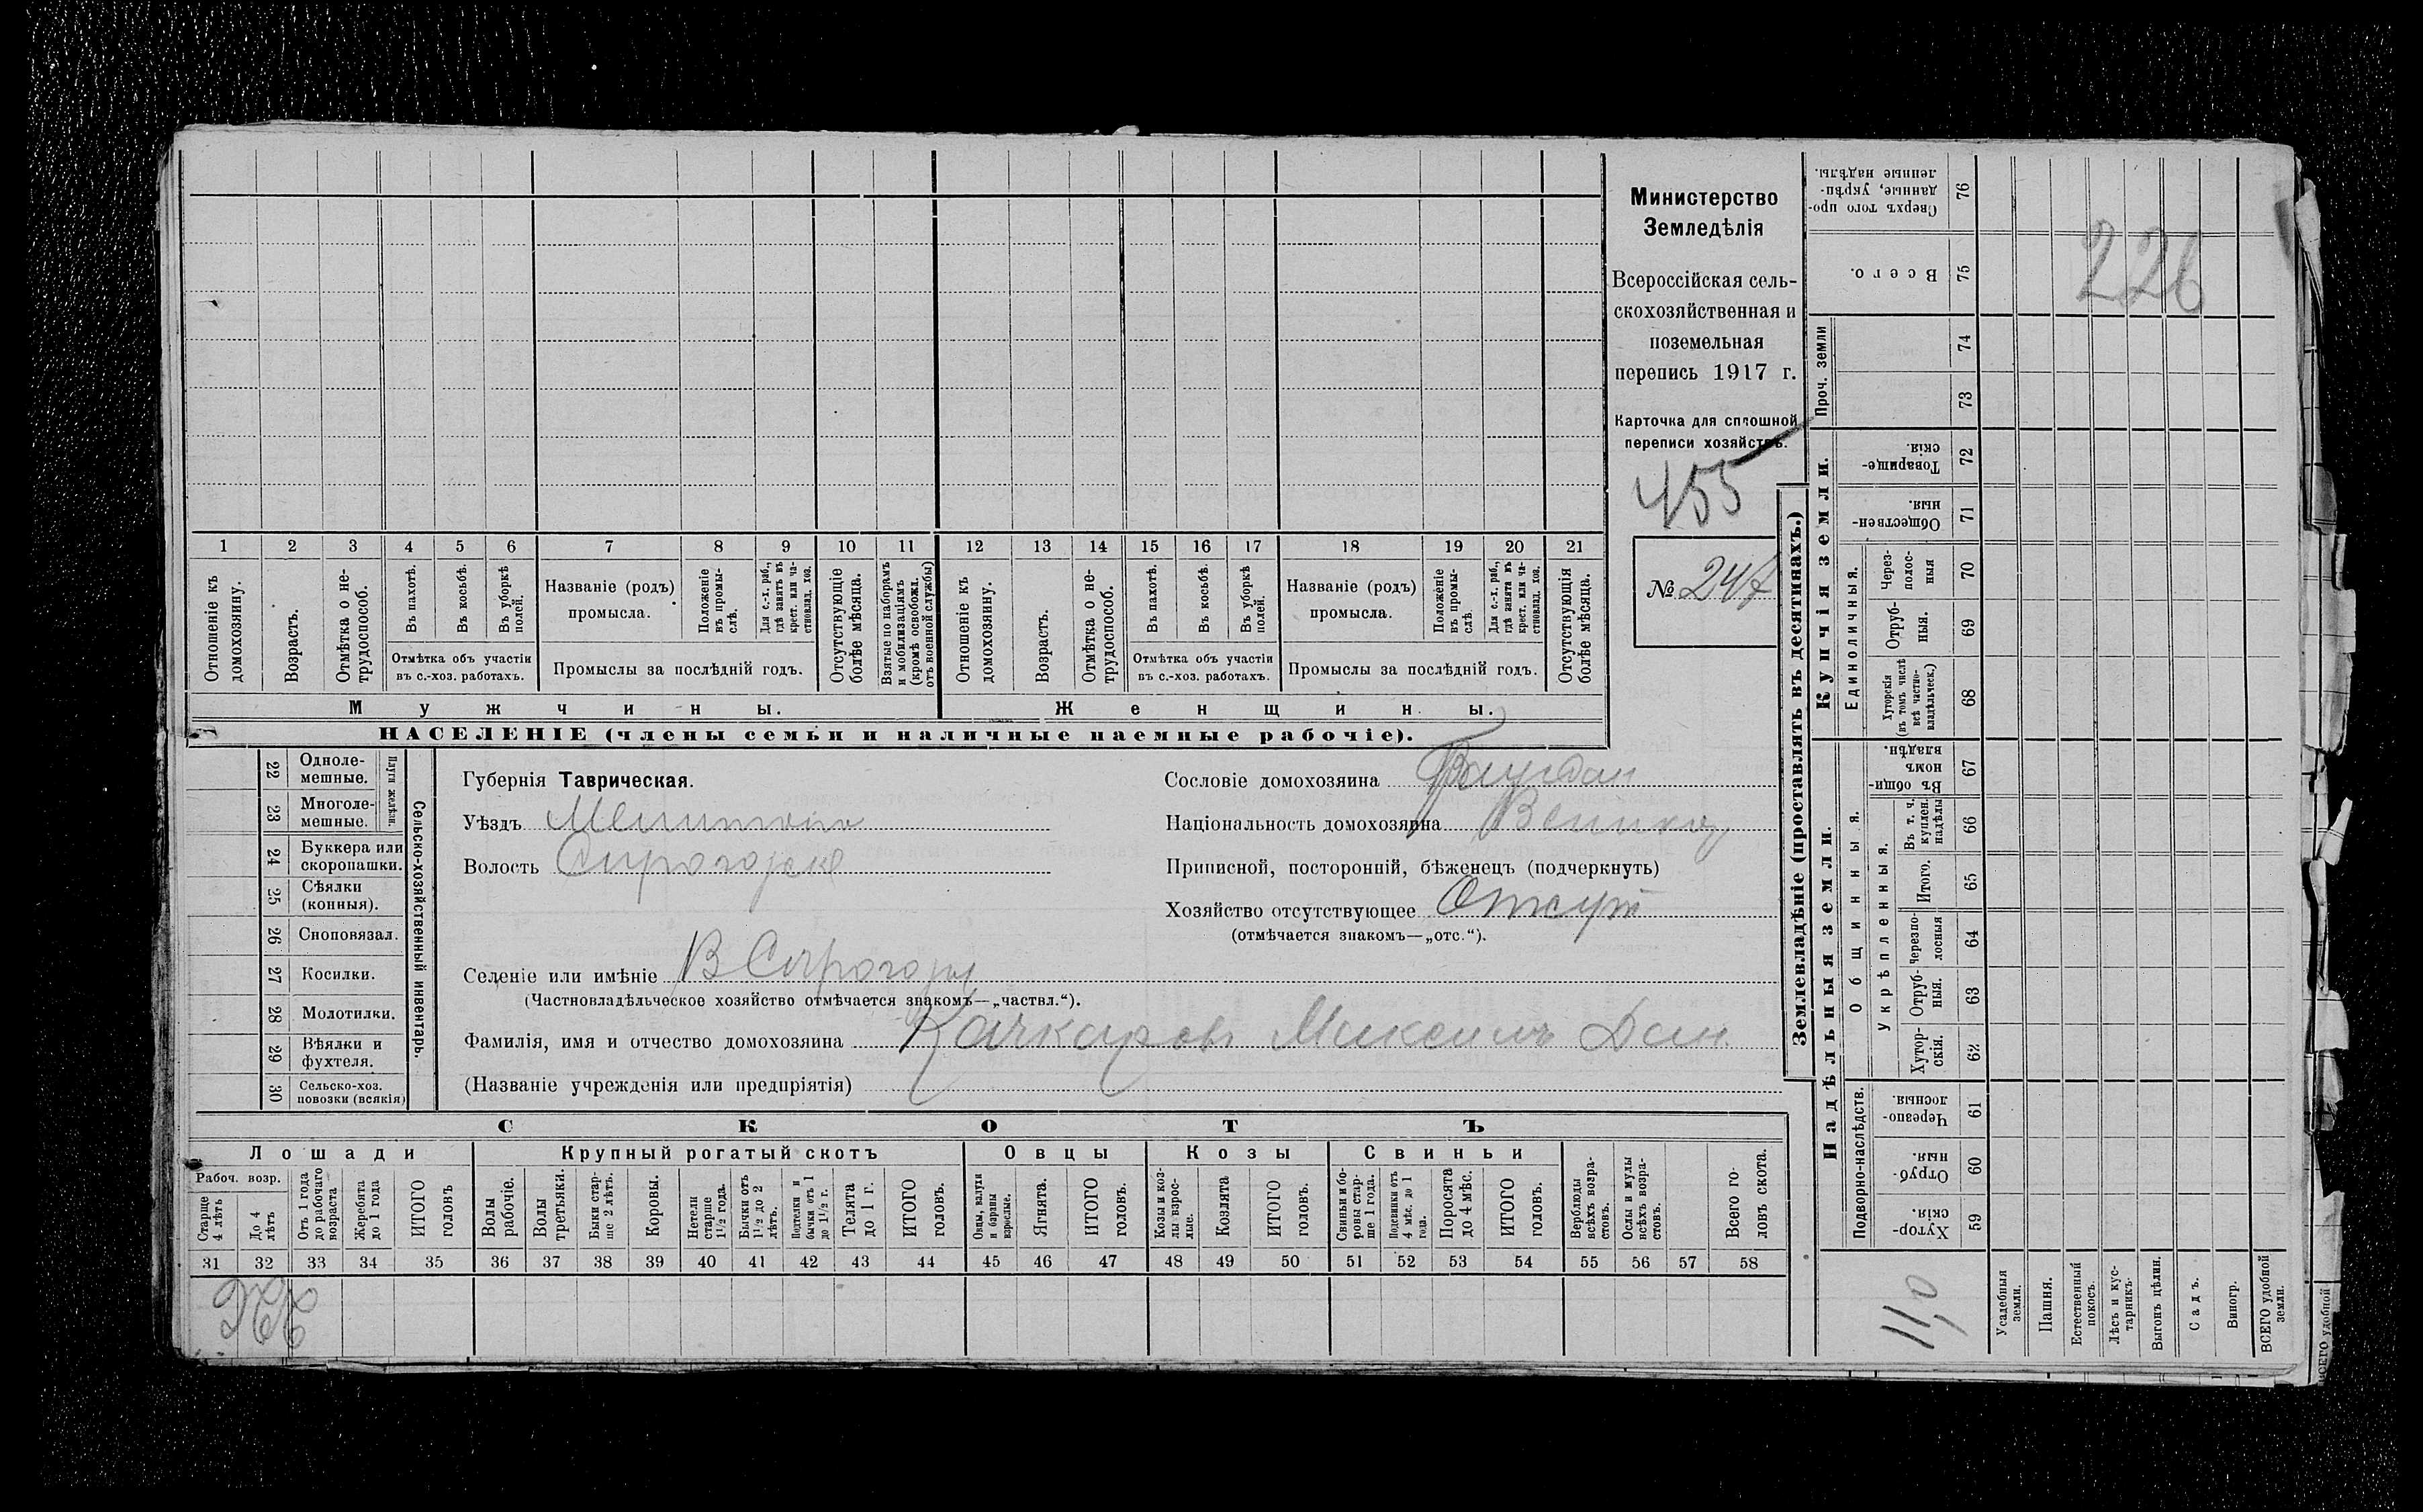 Министерство
Земледѣлія
Всероссійская сель-
скохозяйственная и
поземельная
перепись 1917 г.
Карточка для сплошной
переписи хозяйствъ.
455
№ 247
226
1 2 3 4 5 6 7 8 9 10 11 12 13 14 15 16 17 18 19 20 21
Отношеніе къ домохозяину.
Возрастъ.
Отмѣтка о не-трудоспособ.
Въ пахотѣ.
Въ косьбѣ.
Въ уборкѣ полей.
Отмѣтка объ участіи
въ с.-хоз. работахъ.
Названіе (родъ)
промысла.
Положеніе въ промы-слѣ.
Для с.-х. раб., гдѣ занятъ въ крест. или ча-стновлад. хоз.
Промыслы за послѣдній годъ.
Отсутствующіе болѣе мѣсяца.
Взятые по наборамъ и мобилизаціямъ (кромѣ освобожд. отъ военной службы)
Отношеніе къ домохозяину.
Возрастъ.
Отмѣтка о не-трудоспособ.
Въ пахотѣ.
Въ косьбѣ.
Въ уборкѣ полей.
Отмѣтка объ участіи
въ с.-хоз. работахъ.
Названіе (родъ)
промысла.
Положеніе въ промы-слѣ.
Для с.-х. раб., гдѣ занятъ въ крест. или ча-стновлад. хоз.
Промыслы за послѣдній годъ.
Отсутствующія болѣе мѣсяца.
Мужчины.
Женщины.
НАСЕЛЕНІЕ (члены семьи и наличные наемные рабочіе).
22 Одноле-мешные.
23 Многоле-мешные.
Плуги желѣзн.
24 Буккера или скоропашки.
25 Сѣялки (конныя).
26 Сноповязал.
27 Косилки.
28 Молотилки.
29 Вѣялки и фухтеля.
30 Сельско-хоз. повозки (всякія)
Сельско-хозяйственный инвентарь.
Губернія Таврическая.
Уѣздъ
Волость Сирогорск
Селеніе или имѣніе В Сирогозы
(Частновладѣльческое хозяйство отмѣчается знакомъ—„частвл.“).
Фамилія, имя и отчество домохозяина Качкаровъ Максимъ Дан
(Названіе учрежденія или предпріятія)
Сословіе домохозяина
Національность домохозяина
Приписной, посторонній, бѣженецъ (подчеркнуть)
Хозяйство отсутствующее Отсут
(отмѣчается знакомъ—„отс.“).
СКОТЪ
Лошади
Крупный рогатый скотъ
Овцы
Козы
Свиньи
Рабоч. возр.
Старше 4 лѣтъ
До 4 лѣтъ
Отъ 1 года до рабочаго возраста
Жеребята до 1 года
ИТОГО головъ
Волы рабочіе.
Волы третьяки.
Быки стар-ше 2 лѣтъ.
Коровы.
Нетели старше 1½ года.
Бычки отъ 1½ до 2 лѣтъ.
Подтелки и бычки отъ 1 до 1½ г.
Телята до 1 г.
ИТОГО головъ.
Овцы, валухи и бараны взрослые.
Ягнята.
ИТОГО головъ.
Козы и коз-лы взрос-лые.
Козлята
ИТОГО головъ.
Свиньи и бо-ровы стар-ше 1 года.
Подсвинки отъ 4 мѣс. до 1 года.
Поросята до 4 мѣс.
ИТОГО головъ.
Верблюды всѣхъ возра-стовъ.
Ослы и мулы всѣхъ возра-стовъ.
Всего го-ловъ скота.
31 32 33 34 35 36 37 38 39 40 41 42 43 44 45 46 47 48 49 50 51 52 53 54 55 56 57 58
Землевладѣніе (проставлять въ десятинахъ.)
Надѣльныя земли.
Купчія земли.
Проч. земли
Подворно-наслѣдств.
Общинныя.
Укрѣпленныя.
Единоличныя.
Сверхъ того про-данные, укрѣп-ленные надѣлы. 76
Всего. 75
74
73
Товарище-скія. 72
Обществен-ныя. 71
Через-полос-ныя 70
Отруб-ныя. 69
Хуторскія (въ томъ числѣ всѣ частно-владѣльческ.) 68
Въ общи-номъ владѣн. 67
Въ т. ч. куплен. надѣлы 66
Итого. 65
Черезпо-лосныя 64
Отруб-ныя. 63
Хутор-скія. 62
Черезпо-лосныя. 61
Отруб-ныя. 60
Хутор-скія. 59
11,0
Усадебныя земли.
Пашня.
Естественный покосъ.
Лѣсъ и кус-тарникъ.
Выгонъ цѣлин.
Садъ.
Виногр.
ВСЕГО удобной земли.
ВСЕГО удобной